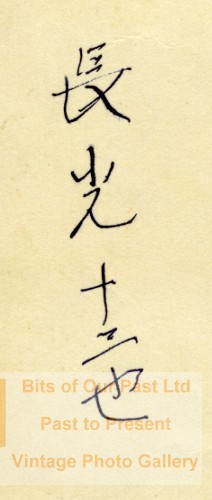 長光十三也
Bits of Our Past Ltd
Past to Present
Vintage Photo Gallery